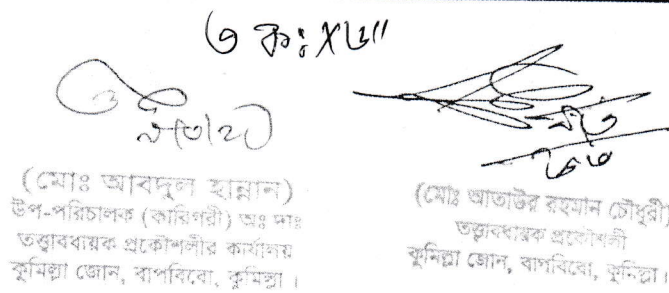 (মোঃ আবদুল হান্নান)
উপ-পরিচালক (কারিগরী) অঃ দাঃ
তত্ত্বাবধায়ক প্রকৌশলীর কার্যালয়
কুমিল্লা জোন, বাপবিবো, কুমিল্লা ।
(মোঃ আতাউর রহমান চৌধুরী)
তত্ত্বাবধায়ক প্রকৌশলী
কুমিল্লা জোন, বাপবিবো, কুমিল্লা ।